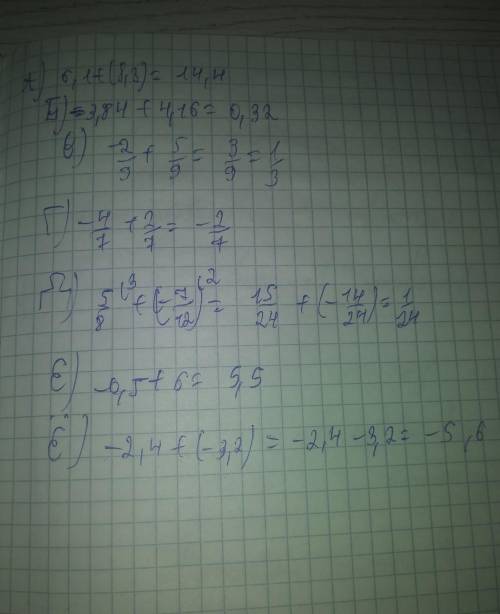 А) 6,1+(8,3)= 14,4
Б) -3,84 + 4,16= 0,32
В) -2/9 + 5/9 = 3/9 = 1/3
Г) -4/7 + 2/7 = -2/7
Д) 5/8 (3 + (-7/12) (2 = 15/24 + (-14/24) = 1/24
Е) -0,5+6= 5,5
Ё) -2,4+(-3,2) = -2,4 -3,2= -5,6